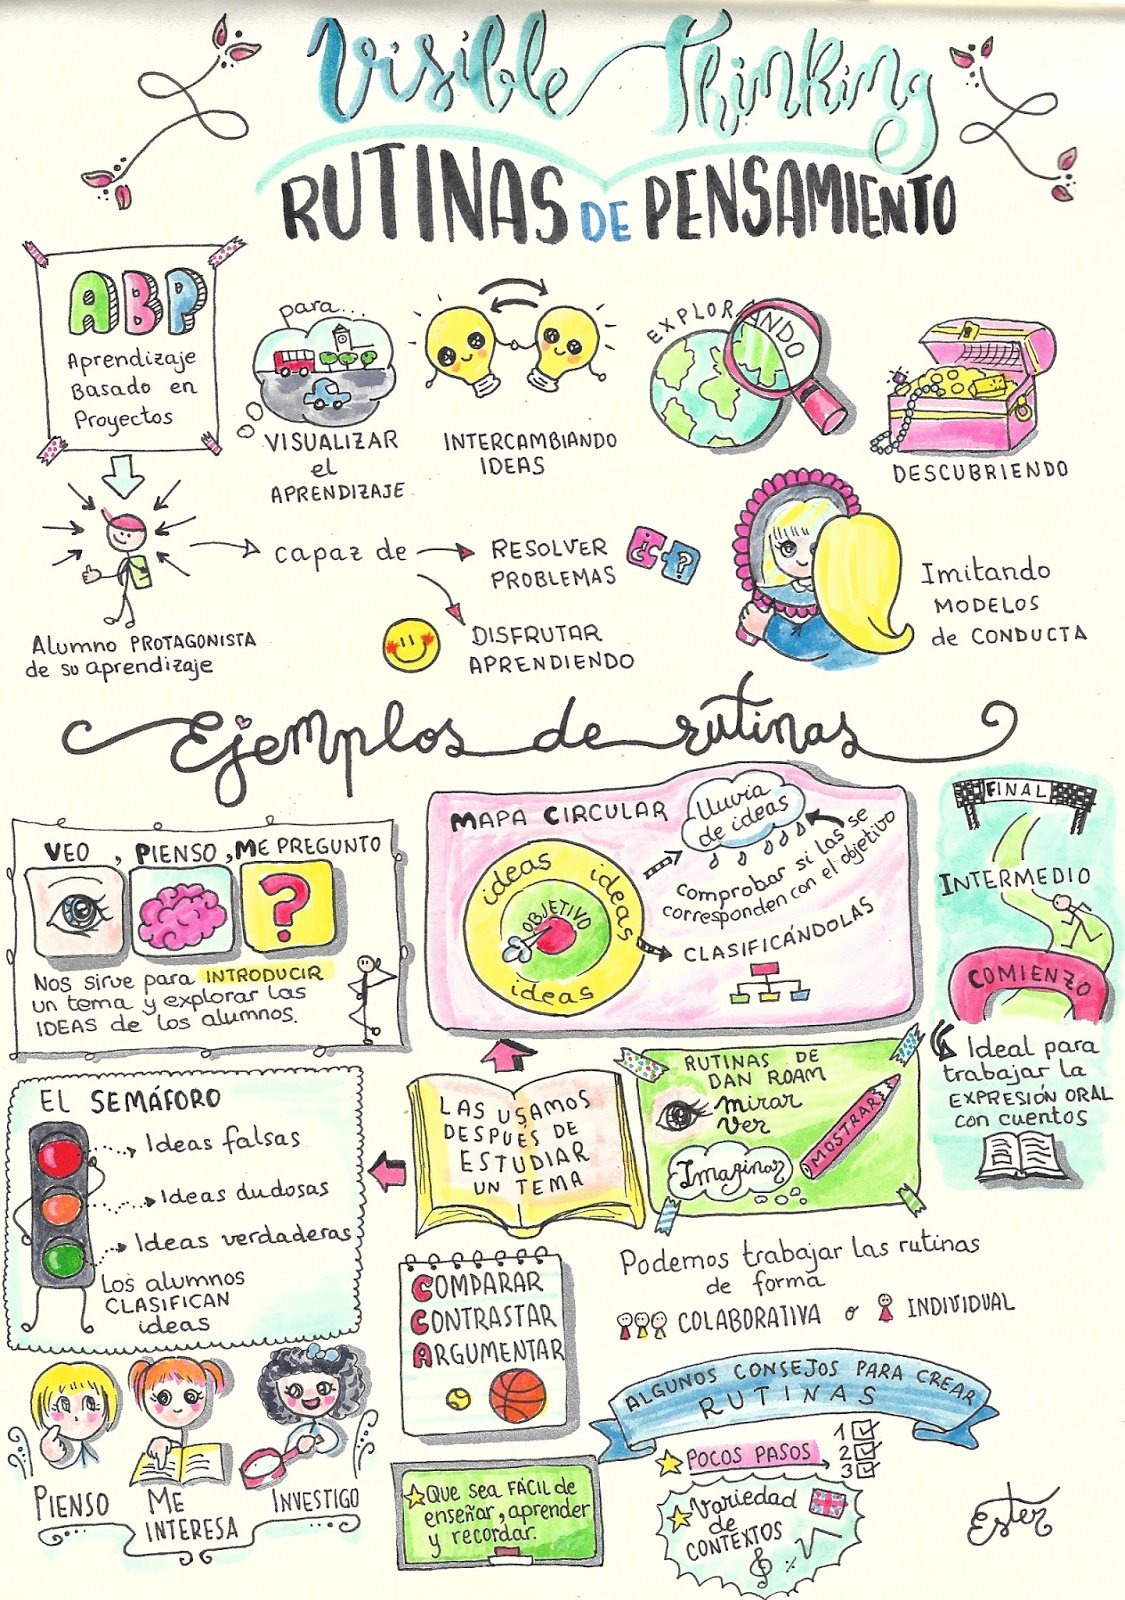 Visible Thinking
RUTINAS DE PENSAMIENTO
ABP
Aprendizaje
Basado en
Proyectos
para...
VISUALIZAR
el
APRENDIZAJE
INTERCAMBIANDO
IDEAS
EXPLORANDO
DESCUBRIENDO
Alumno PROTAGONISTA
de su aprendizaje
capaz de
RESOLVER
PROBLEMAS
¿
?
DISFRUTAR
APRENDIENDO
Imitando
MODELOS
de CONDUCTA
Ejemplos de rutinas
VEO, PIENSO, ME PREGUNTO
?
Nos sirve para INTRODUCIR
un tema y explorar las
IDEAS de los alumnos.
MAPA CIRCULAR
ideas ideas
OBJETIVO
ideas
lluvia
de ideas
comprobar si las se
corresponden con el objetivo
CLASIFICÁNDOLAS
FINAL
INTERMEDIO
COMIENZO
Ideal para
trabajar la
EXPRESIÓN ORAL
con cuentos
EL SEMÁFORO
Ideas falsas
Ideas dudosas
Ideas verdaderas
Los alumnos
CLASIFICAN
ideas
LAS USAMOS
DESPUÉS DE
ESTUDIAR
UN TEMA
RUTINAS DE
DAN ROAM
mirar
ver
Imaginar
MOSTRAR
COMPARAR
CONTRASTAR
ARGUMENTAR
Podemos trabajar las rutinas
de forma
COLABORATIVA o INDIVIDUAL
PIENSO
ME
INTERESA
INVESTIGO
ALGUNOS CONSEJOS PARA CREAR
RUTINAS
POCOS PASOS
1
2
3
Que sea FÁCIL de
enseñar, aprender
y recordar.
Variedad
de
CONTEXTOS
% √
Ester